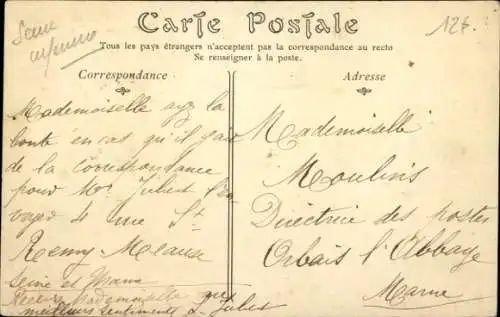 Carte Postale
Tous les pays étrangers n'acceptent pas la correspondance au recto
Se renseigner à la poste.
Correspondance
Adresse
Mademoiselle ayez la
bonté en cas qu'il y ait
de la correspondance
pour Mr Jubert l'en
voyez 4 rue St
Remy Meaux
Seine et Marne
Recevez Mademoiselle mes
meilleurs sentiments L. Jubert
Mademoiselle
Moulins
Directrice des postes
Orbais l'Abbaye
Marne